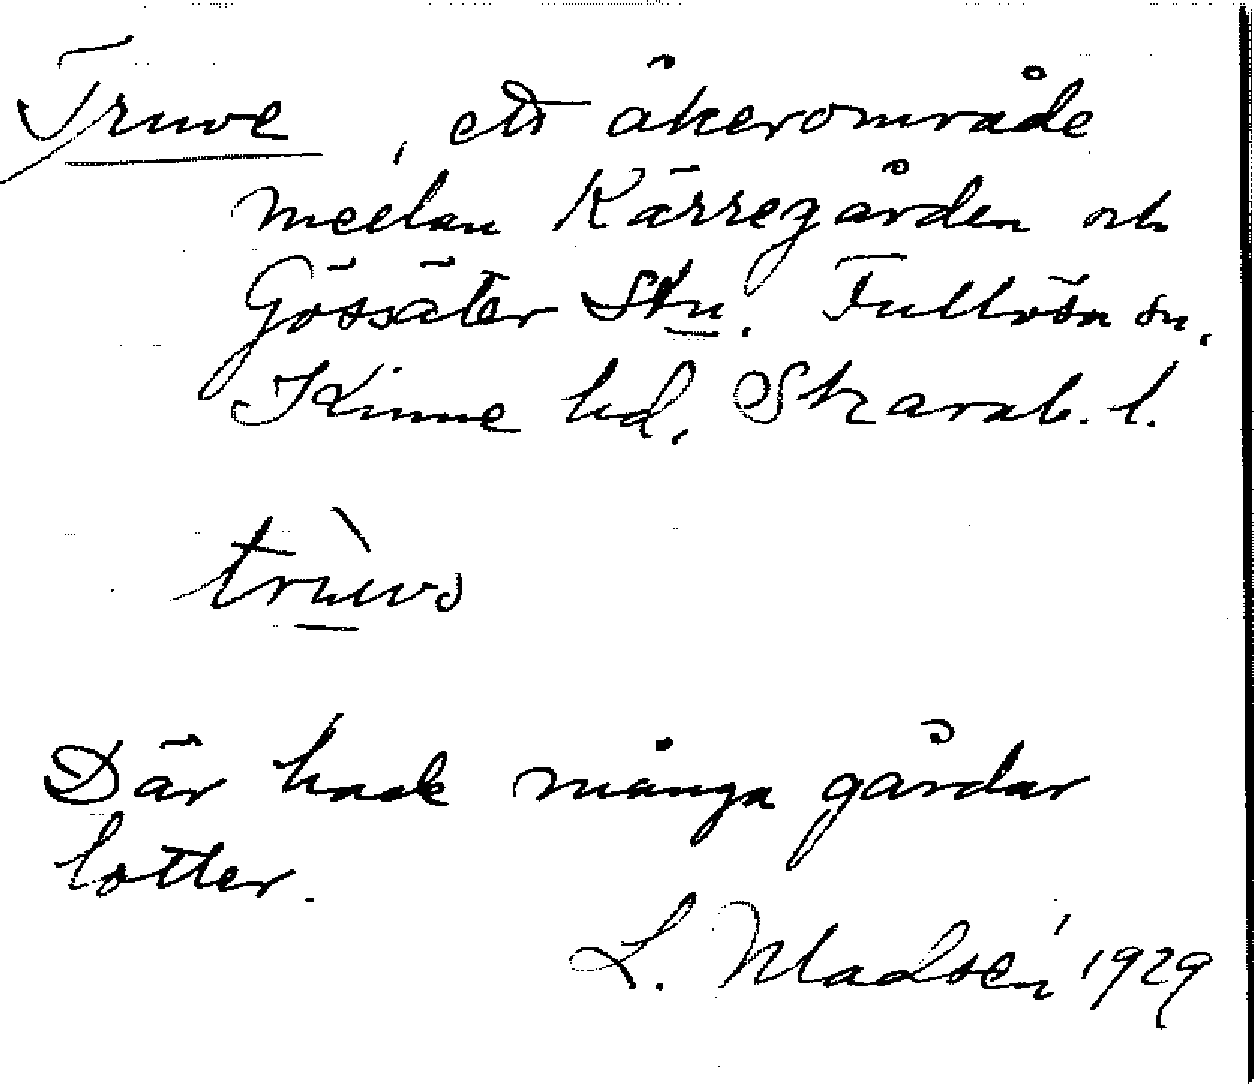 Truve, ett åkerområde
mellan Kärregården och
Gössäter Stn. Fullösa sn,
Kinne hd, Skarab. l.
Där hade många gårdar
lotter.
L. Madsén 1929